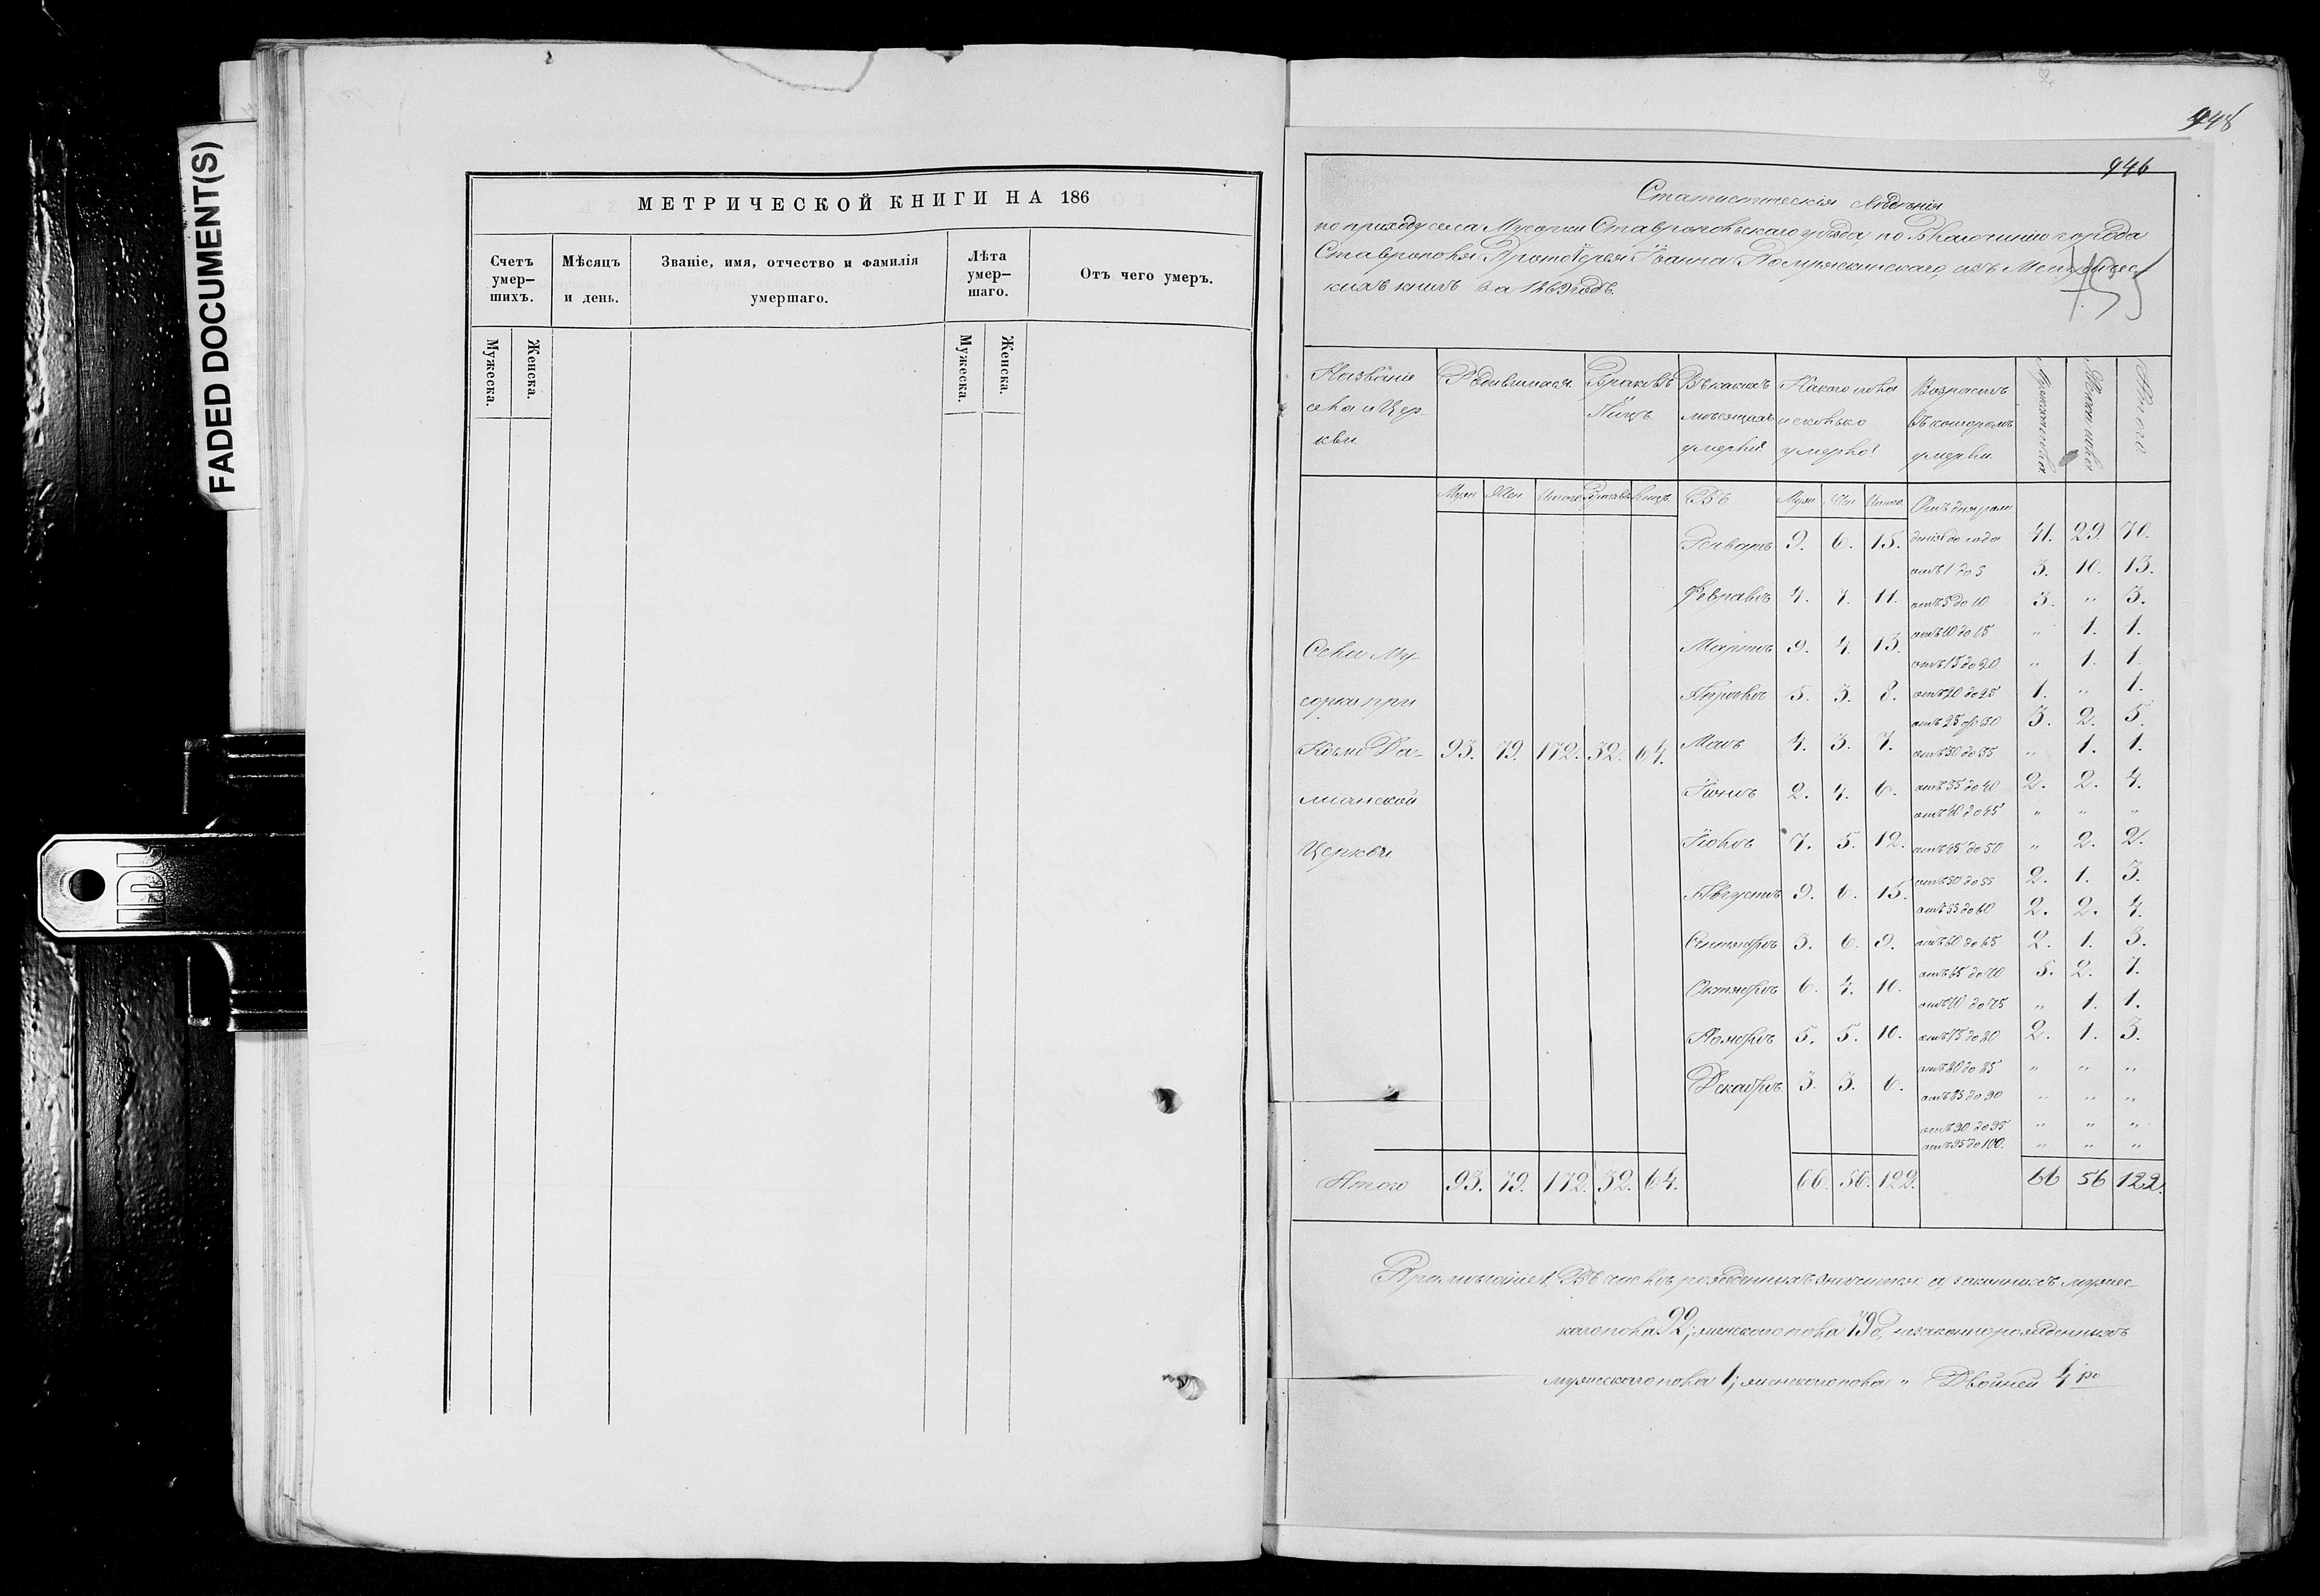 FADED DOCUMENT(S)
МЕТРИЧЕСКОЙ КНИГИ НА 186
Счетъ умер-шихъ.
Мѣсяцъ и день.
Званіе, имя, отчество и фамилія умершаго.
Лѣта умер-шаго.
Отъ чего умеръ.
Мужеска.
Женска.
Мужеска.
Женска.
IDL
948
946
Статистическія свѣденія
по приходу села Мусорки Ставропольскаго уѣзда по Благочинію города
Ставрополя Протоіерея Іоанна Помряскинскаго, изъ Метричес-
кихъ книгъ за 1869 годъ.
Названіе села и Церкви
Родившихся.
Браковъ Лицъ.
Въ какихъ мѣсяцахъ умерли
Какого пола и сколько умерло
Возрастъ въ которомъ умерли
Мужеск пола
Женск пола
Итого
Муж Жен Итого Браковъ Лицъ Въ Муж Жен Итого Отъ дня рож-
Январѣ 9. 6. 15. денія до года 41. 29. 70.
отъ 1 до 5 3. 10. 13.
Февралѣ 4. 7. 11. отъ 5 до 10 3. „ 3.
отъ 10 до 15 „ 1. 1.
Мартѣ 9. 4. 13. отъ 15 до 20 „ 1. 1.
Апрѣлѣ 5. 3. 8. отъ 20 до 25 1. „ 1.
отъ 25 до 30 3. 2. 5.
Села Му-
сорки при
Космо Да-
міанской
Церкви
93. 79. 172. 32. 64.
Маѣ 4. 3. 7. отъ 30 до 35 „ 1. 1.
Іюнѣ 2. 4. 6. отъ 35 до 40 2. 2. 4.
отъ 40 до 45 „ „ „
Іюлѣ 7. 5. 12. отъ 45 до 50 „ 2. 2.
отъ 50 до 55 2. 1. 3.
Августѣ 9. 6. 15. отъ 55 до 60 2. 2. 4.
Сентябрѣ 3. 6. 9. отъ 60 до 65 2. 1. 3.
отъ 65 до 70 5. 2. 7.
Октябрѣ 6. 4. 10. отъ 70 до 75 „ 1. 1.
Ноябрѣ 5. 5. 10. отъ 75 до 80 2. 1. 3.
отъ 80 до 85 „ „ „
Декабрѣ 3. 3. 6. отъ 85 до 90 „ „ „
отъ 90 до 95 „ „ „
отъ 95 до 100. „ „ „
Итого 93. 79. 172. 32. 64. 66. 56. 122. 66 56 122.
Примѣчаніе 1. Въ числѣ рожденныхъ значится а, законныхъ мужес-
каго пола 92; женскаго пола 79 б, незаконнорожденныхъ
мужескаго пола 1; женскаго пола „ Двойней 4 ро